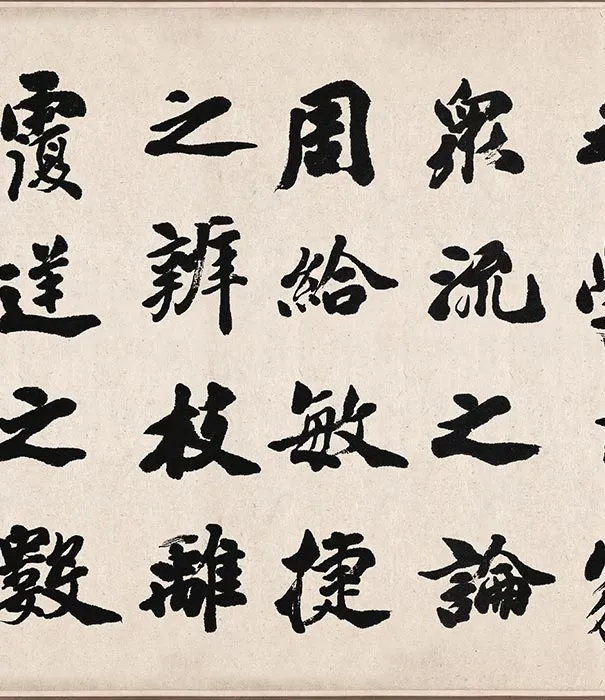 衆流之論
周給敏捷
之辨枝離
覆逆之數